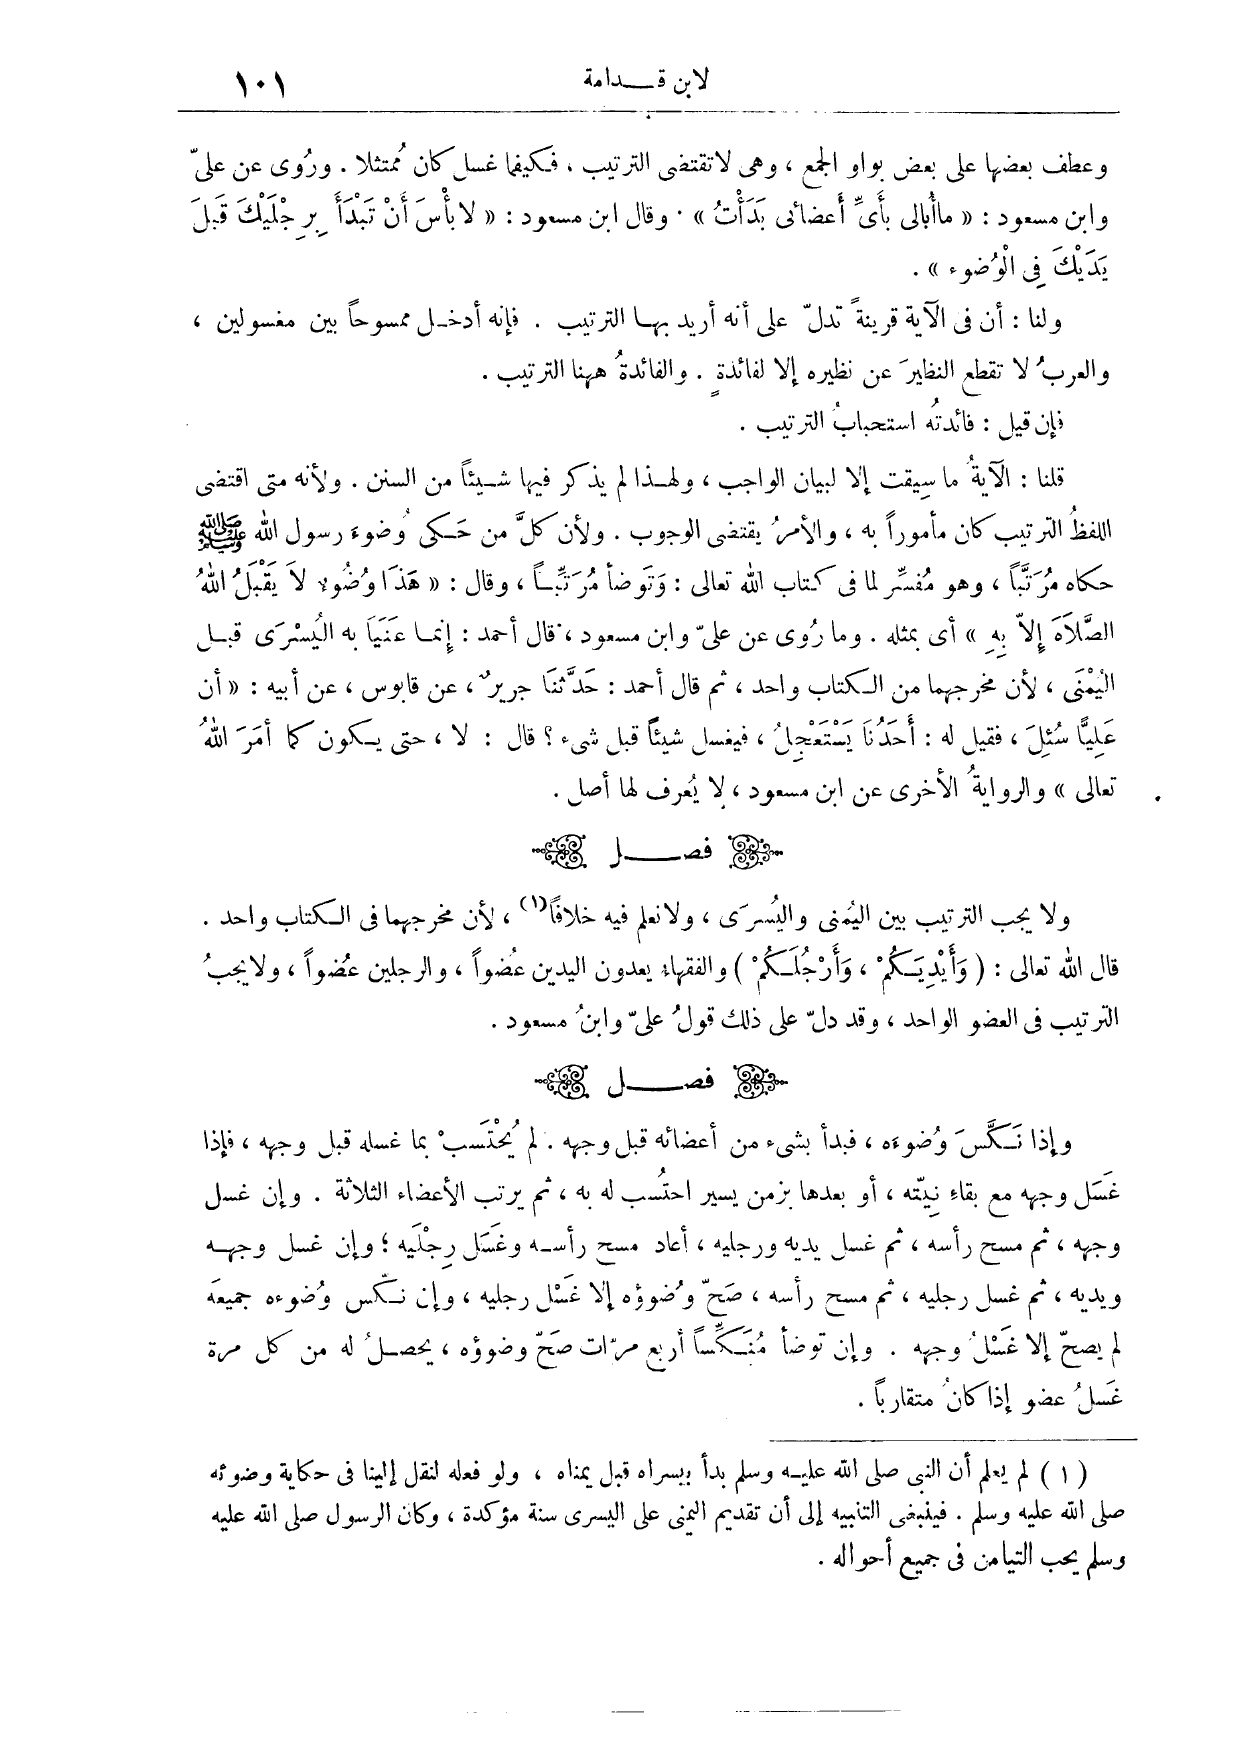 لابن قـــدامة ١٠١
وعطف بعضها على بعض بواو الجمع ، وهى لاتقتضى الترتيب ، فكيفما غسل كان مُمتثلا . ورُوى عن علىّ
وابن مسعود : « ماأبالى بأىِّ أعضائى بَدَأْتُ » . وقال ابن مسعود : « لابأْسَ أَنْ تَبْدَأَ بِرِجْلَيْكَ قَبلَ
يَدَيْكَ فِى الْوُضوء » .
ولنا : أن فى الآية قرينةً تدلّ على أنه أريد بهـا الترتيب . فإنه أدخـل ممسوحاً بين مغسولين ،
والعربُ لا تقطع النظيرَ عن نظيره إلا لفائدةٍ . والفائدةُ ههنا الترتيب .
فإن قيل : فائدتُه استحبابُ الترتيب .
قلنا : الآيةُ ما سِيقت إلا لبيان الواجب ، ولهـذا لم يذكر فيها شـيئاً من السنن . ولأنه متى اقتضى
اللفظُ الترتيب كان مأموراً به ، والأمرُ يقتضى الوجوب . ولأن كلَّ من حَـكى وُضوءَ رسول الله ﷺ
حكاه مُرَتَّباً ، وهو مُفسِّر لما فى كتاب الله تعالى : وَتَوضأ مُرَتِّبـاً ، وقال : « هَذَا وُضُوءٌ لاَ يَقْبَلُ اللهُ
الصَّلاَةَ إِلاّ بِهِ » أى بمثله . وما رُوى عن علىّ وابن مسعود ، قال أحمد : إنمـا عَنَيَا به اليُسْرَى قبـل
اليُمْنَى ، لأن مخرجهما من الـكتاب واحد ، ثم قال أحمد : حَدَّثنَا جريرٌ ، عن قابوس ، عن أبيه : « أن
عَلِيًّا سُئِلَ ، فقيل له : أَحَدُنَا يَسْتَعْجِلُ ، فيغسل شيئاً قبل شىء ؟ قال : لا ، حتى يـكون كما أمَرَ اللهُ
تعالى » والروايةُ الأخرى عن ابن مسعود ، لا يُعرف لها أصل .
فصـــــل
ولا يجب الترتيب بين اليُمنى واليُسرَى ، ولانعلم فيه خلافًا(١) ، لأن مخرجهما فى الـكتاب واحد .
قال الله تعالى : ( وَأَيْدِيَـكُمْ ، وَأَرْجُلَـكُمْ ) والفقهاء يعدون اليدين عُضواً ، والرجلين عُضواً ، ولايجبُ
الترتيب فى العضو الواحد ، وقد دلّ على ذلك قولُ علىّ وابنُ مسعود .
فصـــــل
وإذا نَـكَّسَ وُضوءَه ، فبدأ بشىء من أعضائه قبل وجهه . لم يُحْتَسَبْ بما غسله قبل وجهه ، فإذا
غَسَل وجهه مع بقاءِ نِيّته ، أو بعدها بزمن يسير احتُسب له به ، ثم يرتب الأعضاء الثلاثة . وإن غسل
وجهه ، ثم مسح رأسه ، ثم غسل يديه ورجليه ، أعاد مسح رأسـه وغَسَل رِجْلَيه ؛ وإن غسل وجهـه
ويديه ، ثم غسل رجليه ، ثم مسح رأسه ، صَحّ وُضوؤه إلا غَسْل رجليه ، وإن نـكّس وُضوءه جميعَه
لم يصحّ إلا غَسْلُ وجهه . وإن توضأ مُنَـكِّساً أربع مرّات صَحّ وضوؤه ، يحصـلُ له من كل مرة
غَسلُ عضو إذا كانُ متقارباً .
( ١ ) لم يعلم أن النبى صلى الله عليـه وسلم بدأ بيسراه قبل يمناه ، ولو فعله لنقل إلينا فى حكاية وضوئه
صلى الله عليه وسلم . فينبغى التنبيه إلى أن تقديم اليمنى على اليسرى سنة مؤكدة ، وكان الرسول صلى الله عليه
وسلم يحب التيامن فى جميع أحواله .